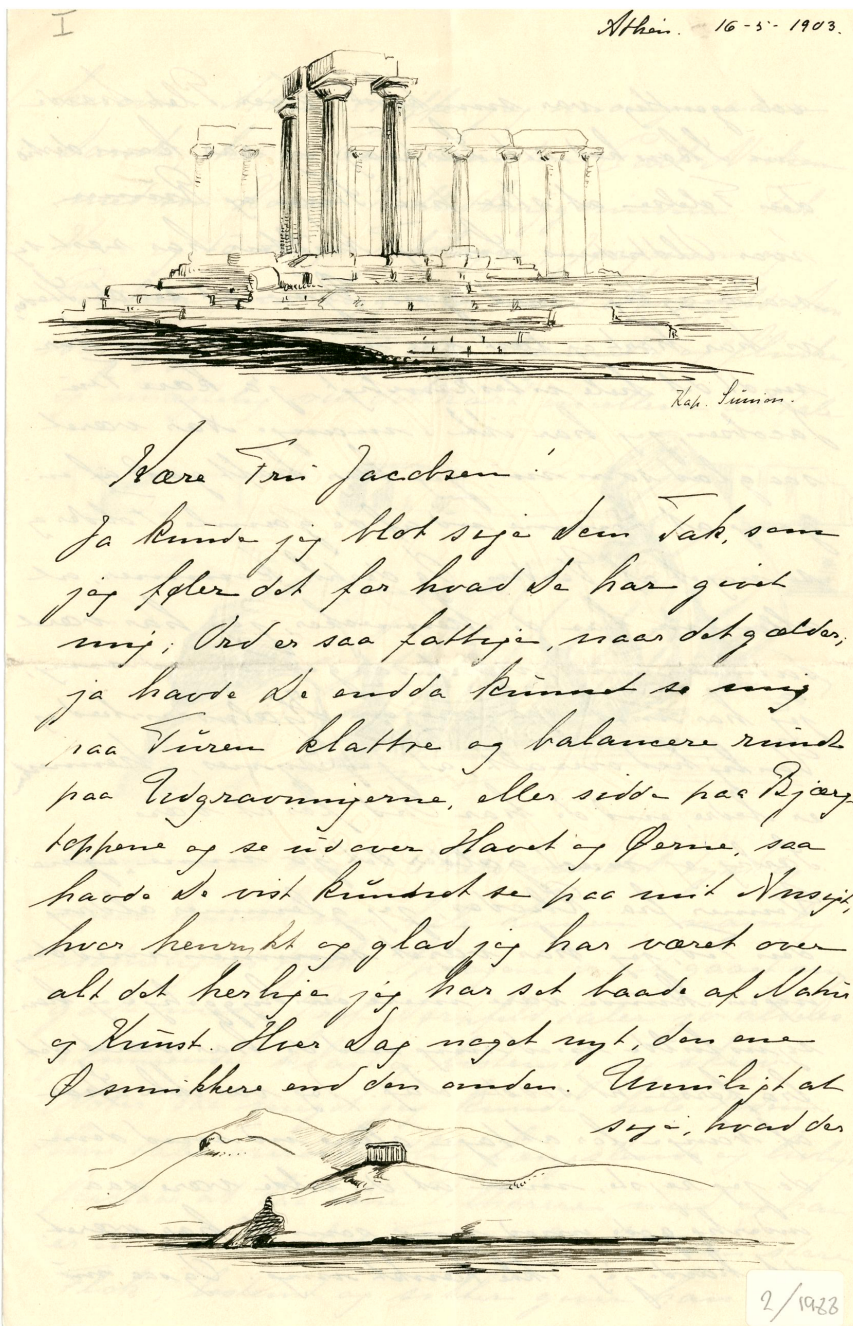 I
Athen. 16-5-1903.
Kap. Sunion.
Kære Fru Jacobsen!
Ja kunde jeg blot sige Dem Tak, som
jeg føler det for hvad De har givet
mig; Ord er saa fattige, naar det gælder,
ja havde De endda kunnet se mig
paa Turen klattre og balancere rundt
paa Udgravningerne, eller sidde paa Bjærg
toppene og se ud over Havet og Øerne, saa
havde De vist kunnet se paa mit Ansigt,
hvor henrykt og glad jeg har været over
alt det herlige jeg har set baade af Natur
og Kunst. Hver Dag noget nyt, den ene
Ø smukkere end den anden. Umuligt at
sige, hvad der
2/1988